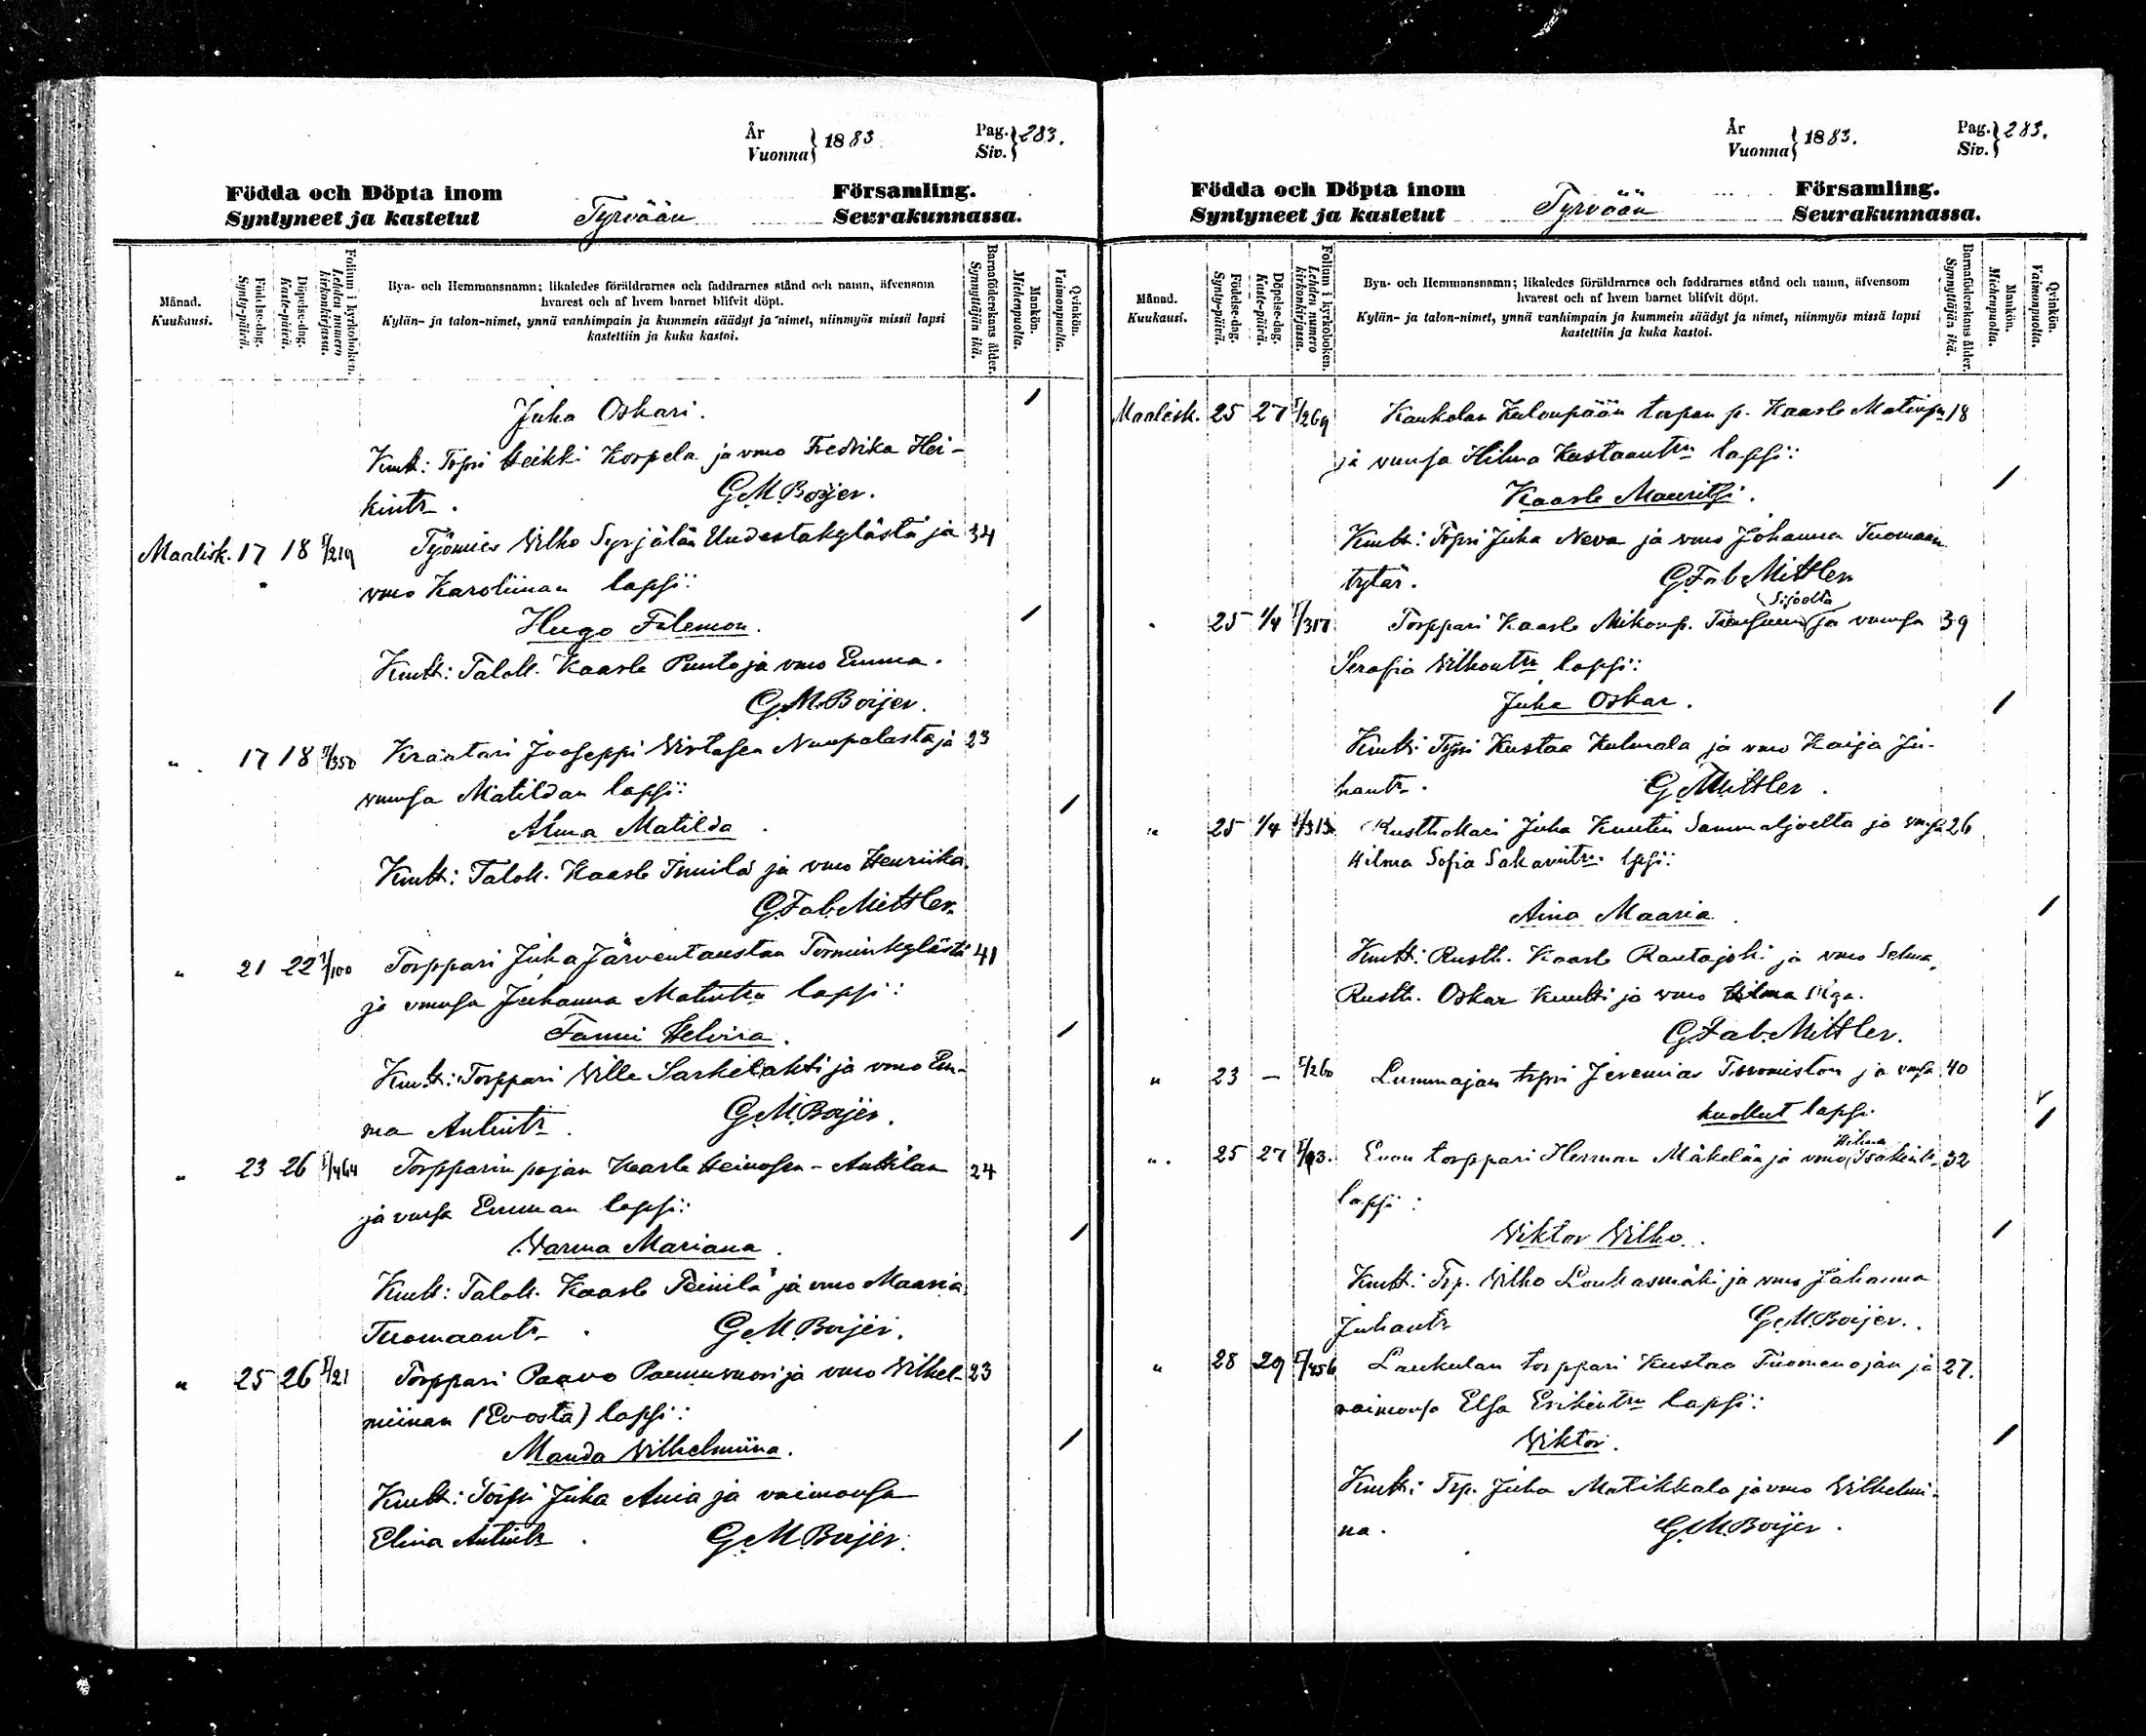 År
Vuonna } 1883
Pag.
Siv. } 283.
Födda och Döpta inom Församling.
Syntyneet ja kastetut Tyrvään Seurakunnassa.
Månad.
Kuukausi.
Födelse-dag.
Synty-päivä.
Döpelse-dag.
Kaste-päivä.
Folium i kyrkoboken.
Lehden numero kirkonkirjassa.
Bya- och Hemmansnamn; likaledes föräldrarnes och faddrarnes stånd och namn, äfvensom
hvarest och af hvem barnet blifvit döpt.
Kylän- ja talon-nimet, ynnä vanhimpain ja kummein säädyt ja nimet, niinmyös missä lapsi
kastettiin ja kuka kastoi.
Barnaföderskans ålder.
Synnyttäjän ikä.
Mankön.
Miehenpuolta.
Qvinkön.
Vaimonpuolta.
Juha Oskari. /
Kmt: Trpri Heikki Korpela ja vmo Fredrika Hei-
kintr. G.M. Boijer.
Maalisk. 17 18 I/219 Työmies Wilho Syrjälän Uudestakylästä ja 34
vmo Karoliinan lapsi:
Hugo Filemon. /
Kmtt: Talok. Kaarle Punto ja vmo Emma.
G.M. Boijer.
" 17 18 /350 Kraatari Jooseppi Wirtasen Nuupalasta ja 23
vmonsa Matildan lapsi: /
Alma Matilda
Kmtt: Talok. Kaarle Junnila ja vmo Henriika.
G Fab. Mittler.
" 21 22 /100 Torppari Juha Järventaustan Torminkylästä 41
ja vmonsa Juhanna Matintr. lapsi:
Fanni Helvira. /
Kmtt: Torppari Wille Särkilahti ja vmo Em-
ma Antintr. G.M. Boijer.
" 23 26 I/464 Torpparin pojan Kaarle Heinosen-Anttilan 24
ja vmsa Emman lapsi:
Warma Mariana. /
Kmtt: Talok. Kaarle ja vmo Maaria
Tuomaantr. G.M. Boijer.
" 25 26 I/21 Torppari Paavo Paununvuori ja vmo Wilhel- 23
miinan (Evosta) lapsi:
Manda Wilhelmiina. /
Kmtt: Torpri Juha Ania ja vaimonsa
Elina Antintr. G.M. Boijer.
År
Vuonna } 1883.
Pag.
Siv. } 283.
Födda och Döpta inom Församling.
Syntyneet ja kastetut Tyrvään Seurakunnassa.
Månad.
Kuukausi.
Födelse-dag.
Synty-päivä.
Döpelse-dag.
Kaste-päivä.
Folium i kyrkoboken.
Lehden numero kirkonkirjassa.
Bya- och Hemmansnamn; likaledes föräldrarnes och faddrarnes stånd och namn, äfvensom
hvarest och af hvem barnet blifvit döpt.
Kylän- ja talon-nimet, ynnä vanhimpain ja kummein säädyt ja nimet, niinmyös missä lapsi
kastettiin ja kuka kastoi.
Barnaföderskans ålder.
Synnyttäjän ikä.
Mankön.
Miehenpuolta.
Qvinkön.
Vaimonpuolta.
Maalisk. 25 27 I/269 Kaukolan Kulonpään torpan p. Kaarle Matinp. 18
ja vmnsa Hilma Kustaantr. lapsi:
Kaarle Mauritsi. /
Kmtt: Trpri Juha Neva ja vmo Johanna Tuomaan
tytär. G Fab. Mittler
Sijoolta
" 25 1/4 /317 Torppari Kaarle Mikonp. ja vmnsa 39
Serafia Wilhontr. lapsi:
Juha Oskar. /
Kmtt: Trpri Kustaa Kulmala ja vmo Kaija Ju-
hantr. G Mittler.
" 25 1/4 /313 Rustihollari Juha Knuutin Sammaljoelta ja vmsa 26
Hilma Sofia Sakarintr. lpsi:
Aina Maaria. /
Kmtt: Rusth. Kaarle Rautajoki ja vmo Selma,
Rusth. Oskar Knuutti ja vmo Hilma Olga.
G Fab. Mittler.
" 23 — I/260 Lummajan trpri Jeremias Toromiston ja vmsa 40
kuollut lapsi. /
Hilma
" 25 27 I/83. Evon torppari Herman Mäkelän ja vmo Isakintr. 32
lapsi:
Wiktor Wilho. /
Kmtt: Trp. Wilho Louhasmäki ja vmo Johanna
Juhantr. G.M. Boijer.
" 28 29 I/456 Laukulan torppari Kustaa Tuomenojan ja 27.
vaimonsa Elsa Erikintr. lapsi:
Wiktor. /
Kmtt: Trp. Juha Matikkala ja vmo Wilhelmi-
na. G.M. Boijer.